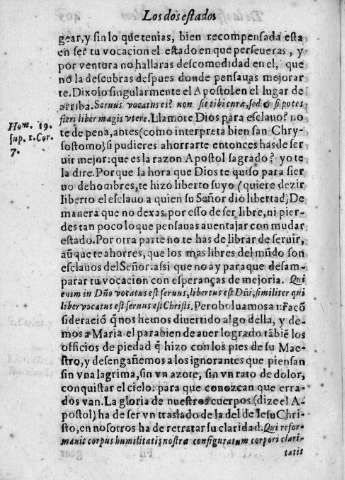 Los dos estados
gear, y sin lo que tenias, bien recompensada esta
en ser tu vocacion el estado en que perseueras, y
por ventura no hallaras descomodidad en el, que
no la descubras despues donde pensauas mejorar
te. Dixolo singularmente el Apostol en el lugar de
arriba. Seruus vocatus es? non sit tibi curæ, sed & si potes
fieri liber magis vtere. Llamote Dios para esclauo? no
te de pena, antes (como interpreta bien san Chry-
sostomo) si pudieres ahorrarte entonces has de ser
uir mejor: que es la razon Apostol sagrado? yo te
la dire. Porque la hora que Dios te quiso para sier
uo de hombres, te hizo liberto suyo (quiere dezir
liberto el esclauo a quien su Señor dió libertad) De
manera que no dexas por esso de ser libre, ni pier-
des tan poco lo que pensauas auentajar con mudar
estado. Por otra parte no te has de librar de seruir,
aũque te ahorres, que los mas libres del mũdo son
esclauos del Señor: assi que no ay para que desam-
parar tu vocacion con esperanças de mejoria. Qui
enim in Dño vocatus est seruus, libertus est Dñi, similiter qui
liber vocatus est seruus est Christi. Pero boluamos a la cõ
sideració q̃ nos hemos diuertido algo della, y de-
mos a Maria el parabien de auer logrado tãbiẽ los
officios de piedad q̃ hizo con los pies de su Mae-
stro, y desengañemos a los ignorantes que piensan
sin vna lagrima, sin vn azote, sin vn rato de dolor,
conquistar el cielo: para que conozcan que erra-
dos van. La gloria de nuestros cuerpos (dize el A-
postol) ha de ser vn traslado de la del de Iesu Chri-
sto, en nosotros ha de retratar su claridad. Qui refor-
mauit corpus humilitatis nostræ configuratum corpori clari-
tatis
Hom. 19.
sup. 1. Cor.
7.